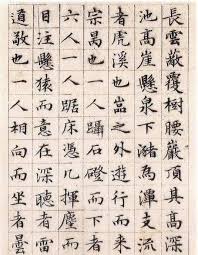 長雲蔽覆樹腰巖頂其高深
池高崖懸泉下瀦為潭支流
者虎溪也一嵓之外遊行而來
宗昺也一人躡石磴而下者
六人一人踞床憑几揮麈而
目注懸猿而意在深聽者雷
道敬也一人相向而坐者曇